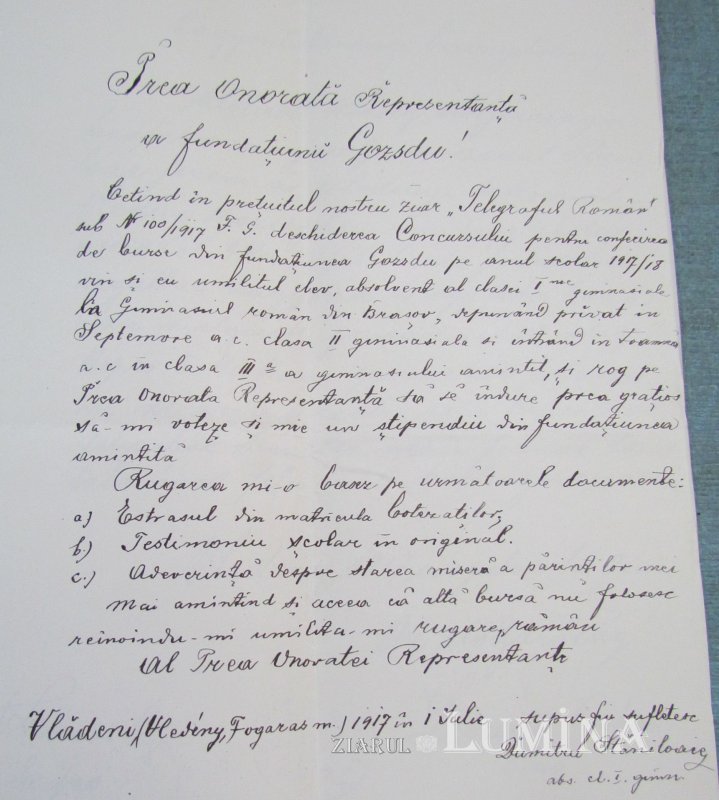 Prea Onorată Representanță
a fundațiunii Gozsdu!
Cetind în prețuitul nostru ziar „Telegraful Român"
sub Nr 100/1917 F. G. deschiderea Concursului pentru conferirea
de burse din fundațiunea Gozsdu pe anul scolar 1917/18
vin si cu umilitul elev, absolvent al clasei I gimnasiale
la Gimnasiul român din Brașov, depunând privat in
Septemvre a.c. clasa II gimnasiala si intrând in toamna
a.c in clasa III a a gimnasiului amintit, si rog pe
Prea Onorata Representanță să se îndure prea grațios
să-mi voteze și mie un stipendiu din fundațiunea
amintită
Rugarea mi-o basez pe următoarele documente:
a) Estrasul din matricula botezatilor,
b) Testimoniu școlar in original.
c.) Adeverință despre starea miseră a părinților mei
Mai amintind si aceea că altă bursă nu folosesc
reinoindu-mi umilita-mi rugare, rămân
Al Prea Onoratei Representanțe
Vlădeni (Vledény, Fogaras m.) 1917 în 1 Iulie supus fiu sufletesc
Dumitru Staniloaie
abs. cl. I. gimn.
ZIARUL LUMINA